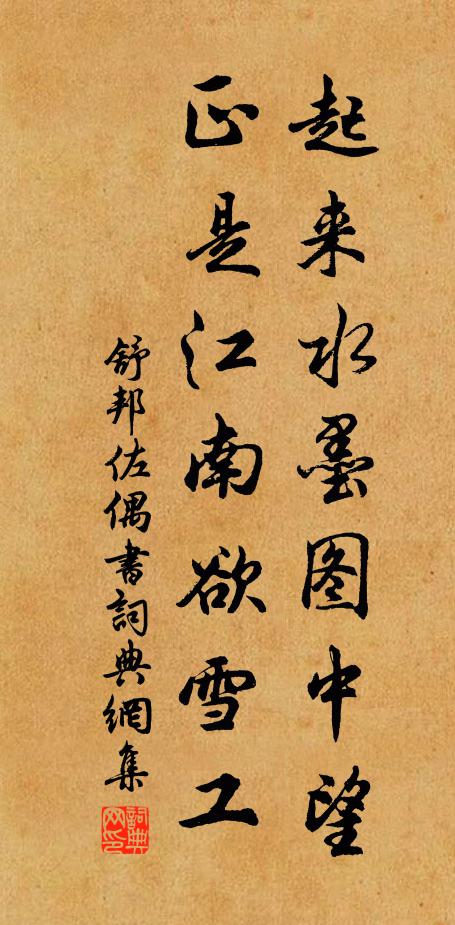 起来水墨图中望
正是江南欲雪工
舒邦佐偶書詞典網集
詞典网印